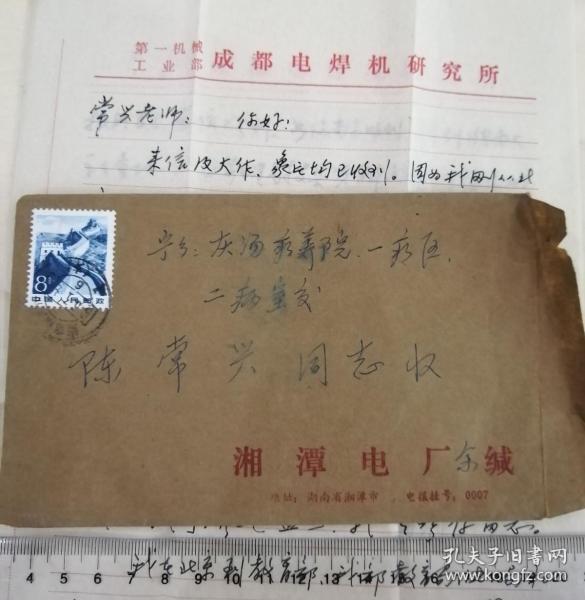 第一机械
工业部 成都电焊机研究所
常兴老师： 你好！
来信及大作、意见均已收到。因为我刚从北
8分
中国人民邮政
宁乡：灰汤疗养院一疗区
二病室交
陈常兴同志收
湘潭电厂余缄
地址：湖南省湘潭市 电报挂号：0007
我在北京到教育部
4 5 6 7 8 9 10 11 12 13 14
孔夫子旧书网